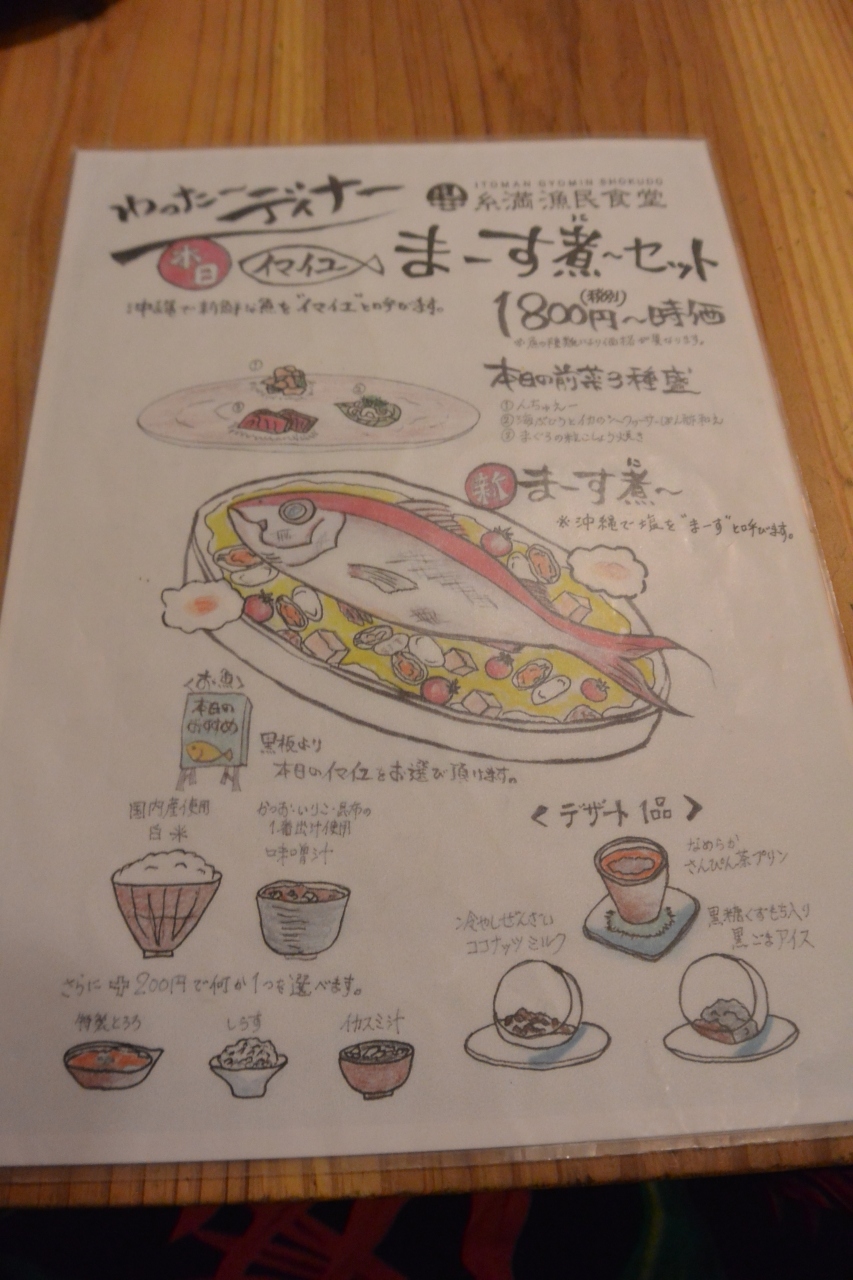 わったーディナー
ITOMAN GYOMIN SHOKUDO
糸満漁民食堂
本日 イマイユ まーす煮~セット
に
沖縄で新鮮な魚を"イマイユ"と呼びます。
1800円~時価
(税別)
※魚の種類により価格が異なります。
本日の前菜3種盛
① ② ③
①んちゅえー
②海ぶどうとイカのシークヮーサーぽん酢和え
③まぐろの粒こしょう焼き
新 まーす煮~
に
※沖縄で塩を"まーす"と呼びます。
<お魚>
本日の
おすすめ
黒板より
本日のイマイユをお選び頂けます。
国内産使用
白米
かつお・いりこ・昆布の
1番出汁使用
味噌汁
<デザート1品>
なめらか
さんぴん茶プリン
冷やしぜんざい
ココナッツミルク
黒糖くずもち入り
黒ごまアイス
さらに 200円で何か1つを選べます。
特製とろろ
しらす
イカスミ汁